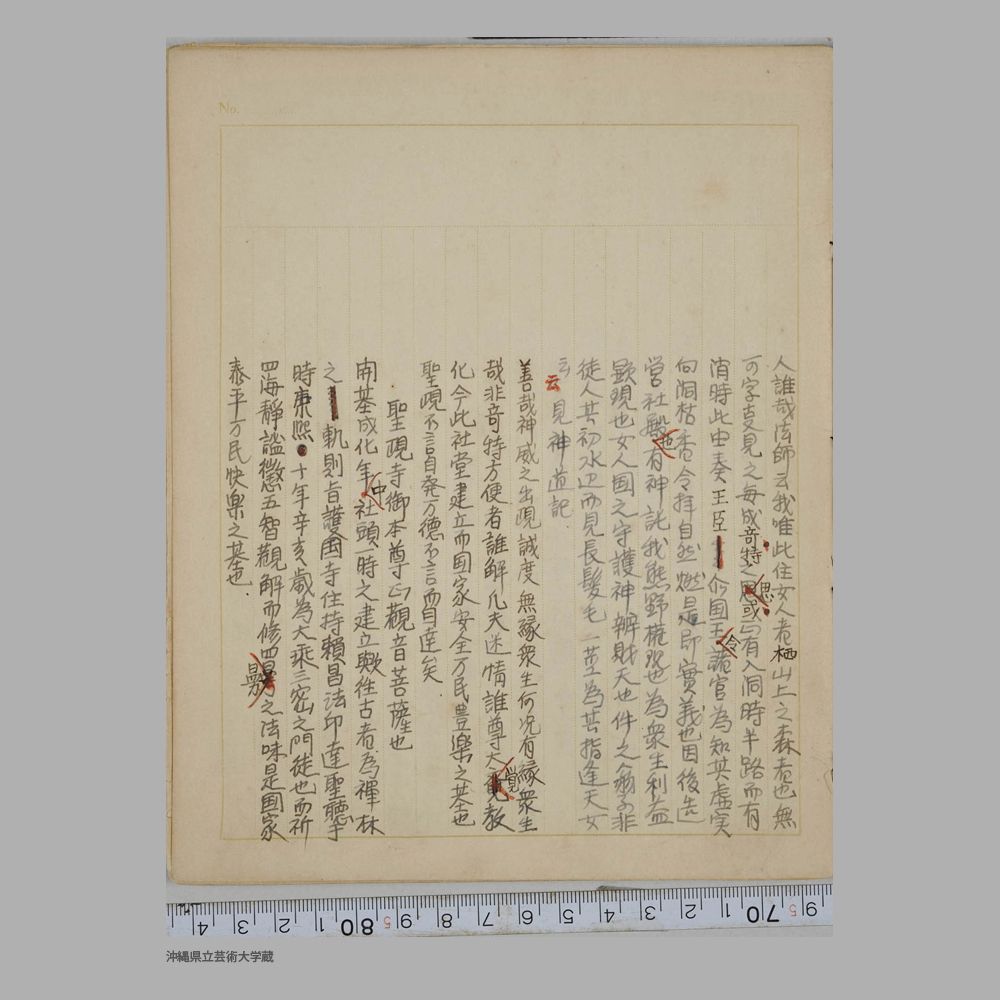 No.
人誰哉法師云我唯此住女人者栖山上之森者也無
可字支見之毎成奇特之思或曰有入洞時半路而有
消時此由奏王臣介国王令諸官為知其虚実
向洞枯香令拝自然燃是即實義也因後造
営社殿也有神託我熊野権現也為衆生利益
顕現也女人国之守護神辨財天也件之翁子非
徒人其初水辺而見長髪毛一莖為其指逢天女
云云見神道記
善哉神威之出現誠度無縁衆生何况有縁衆生
哉非奇特方便者誰解凡夫迷情誰尊大覚教
化今此社堂建立而国家安全万民豊樂之基也
聖現不言自発万徳不言而自達矣
聖現寺御本尊正觀音菩薩也
開基成化年中社頭一時之建立歟往古者為禪林
之軌則旨護国寺住持頼昌法印達聖聴于
時康熙十年辛亥歳為大乘三密之門徒也而祈
四海静謐懲五智觀解而修四曼之法味是国家
泰平万民快樂之基也.
9 5 70 1 2 3 4 5 6 7 8 9 5 80 1 2 3 4
沖縄県立芸術大学蔵